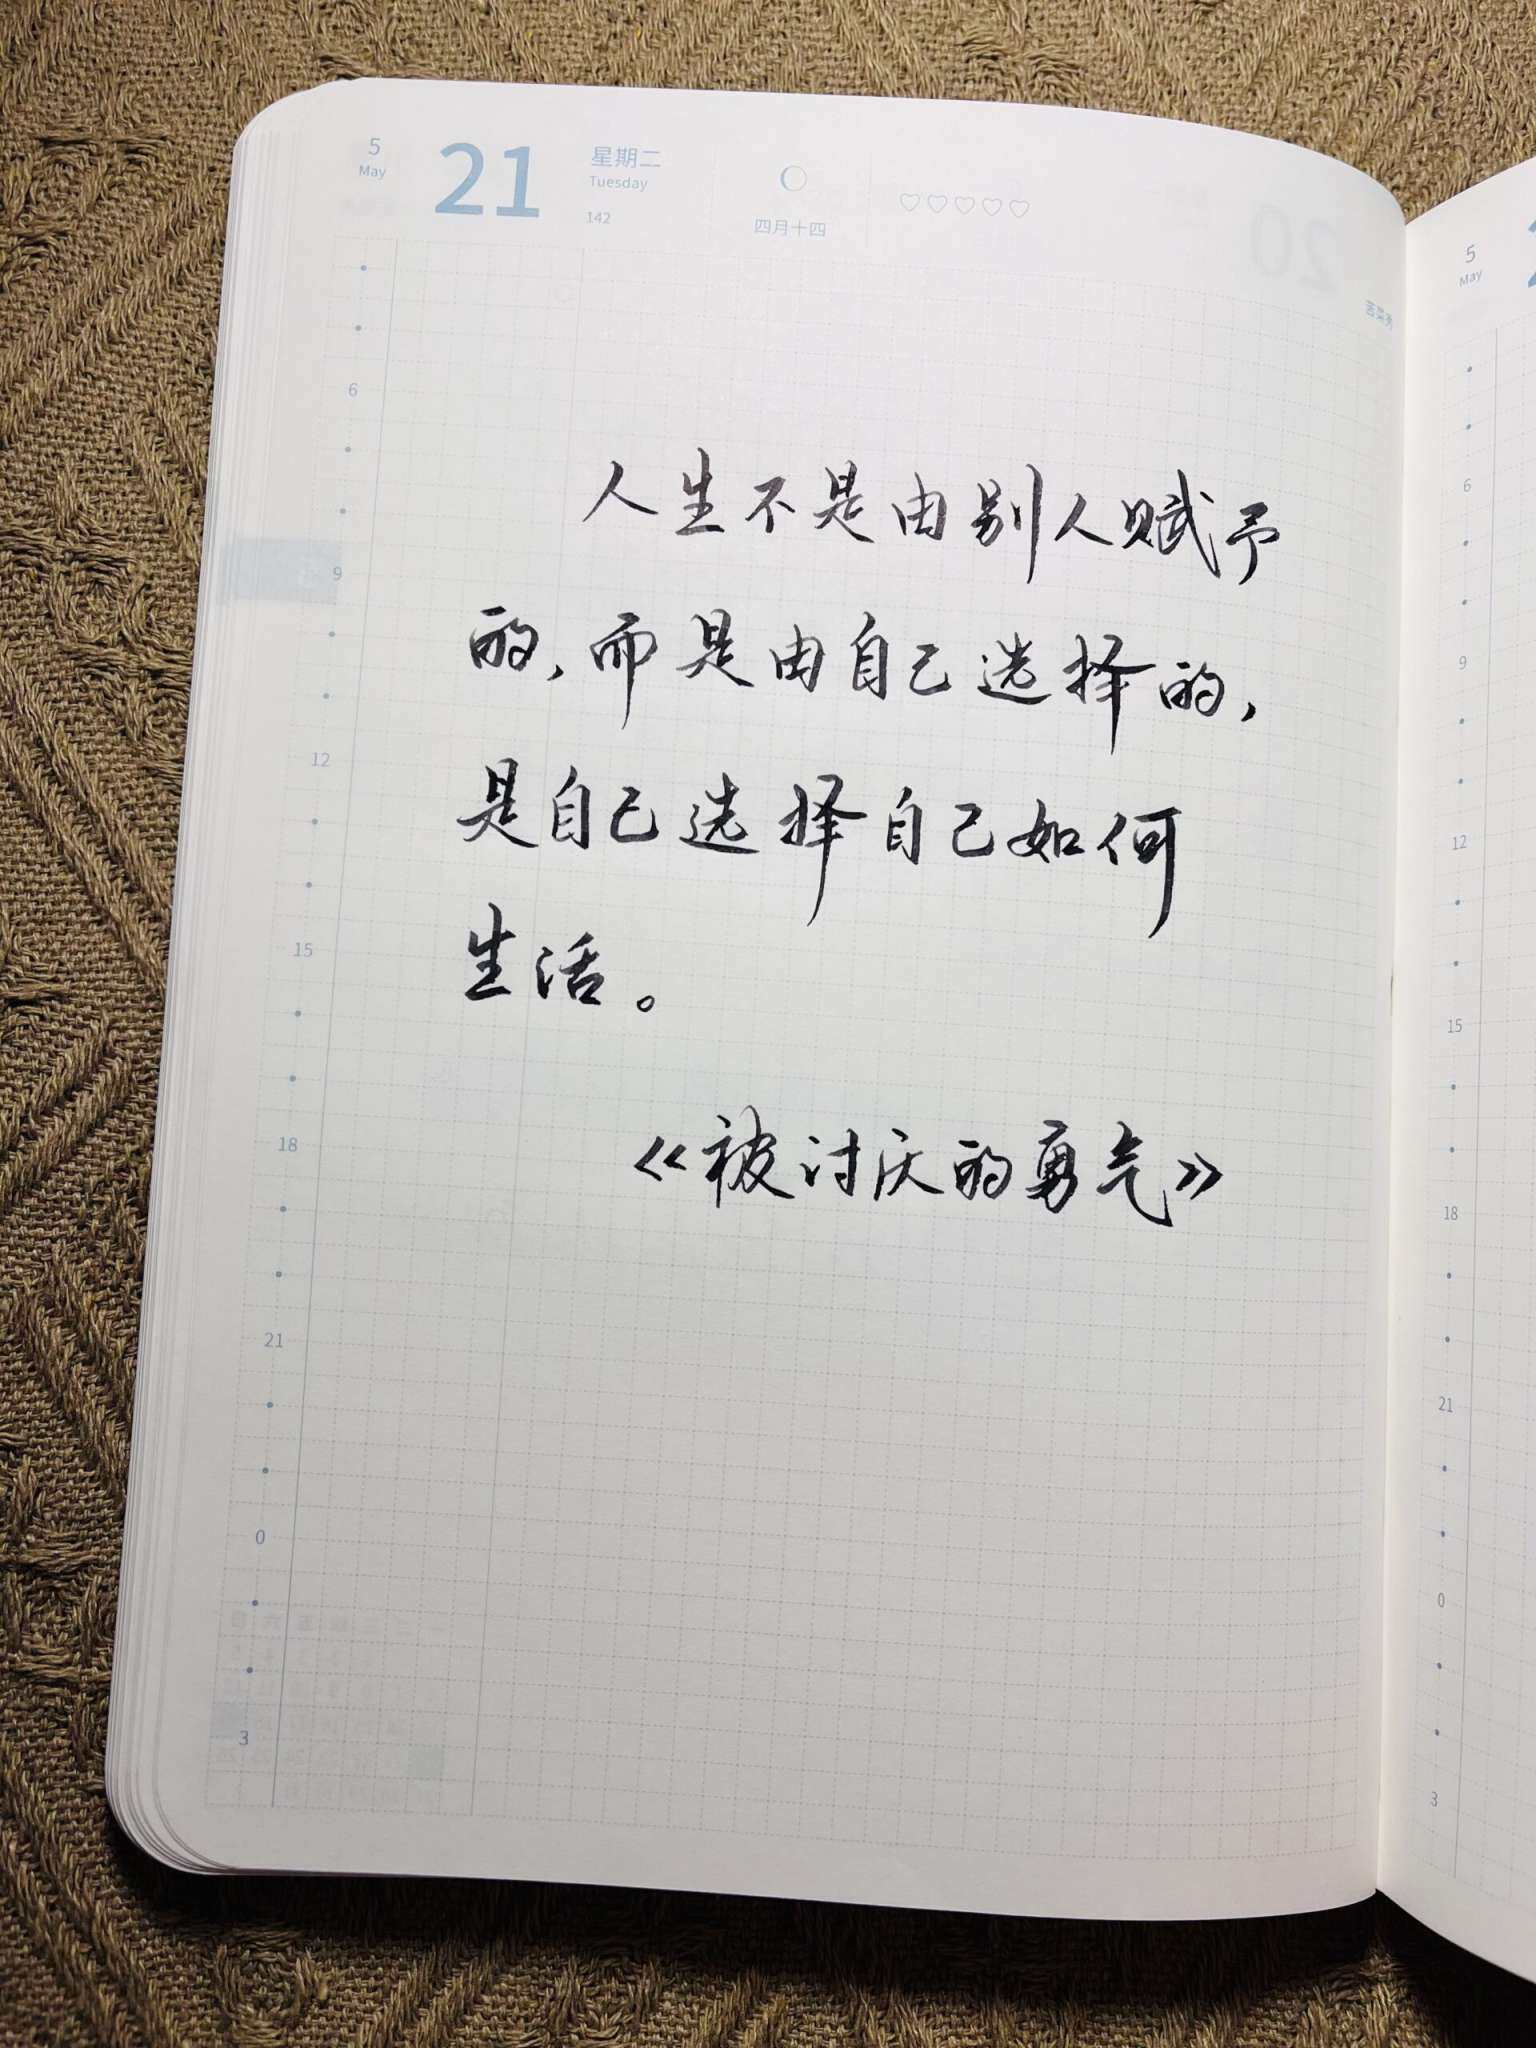 5
May
21
星期二
Tuesday
142
四月十四
人生不是由别人赋予
的,而是由自己选择的,
是自己选择自己如何
生活。
《被讨厌的勇气》
6
9
12
15
18
21
0
3
5
May
6
9
12
15
18
21
0
3